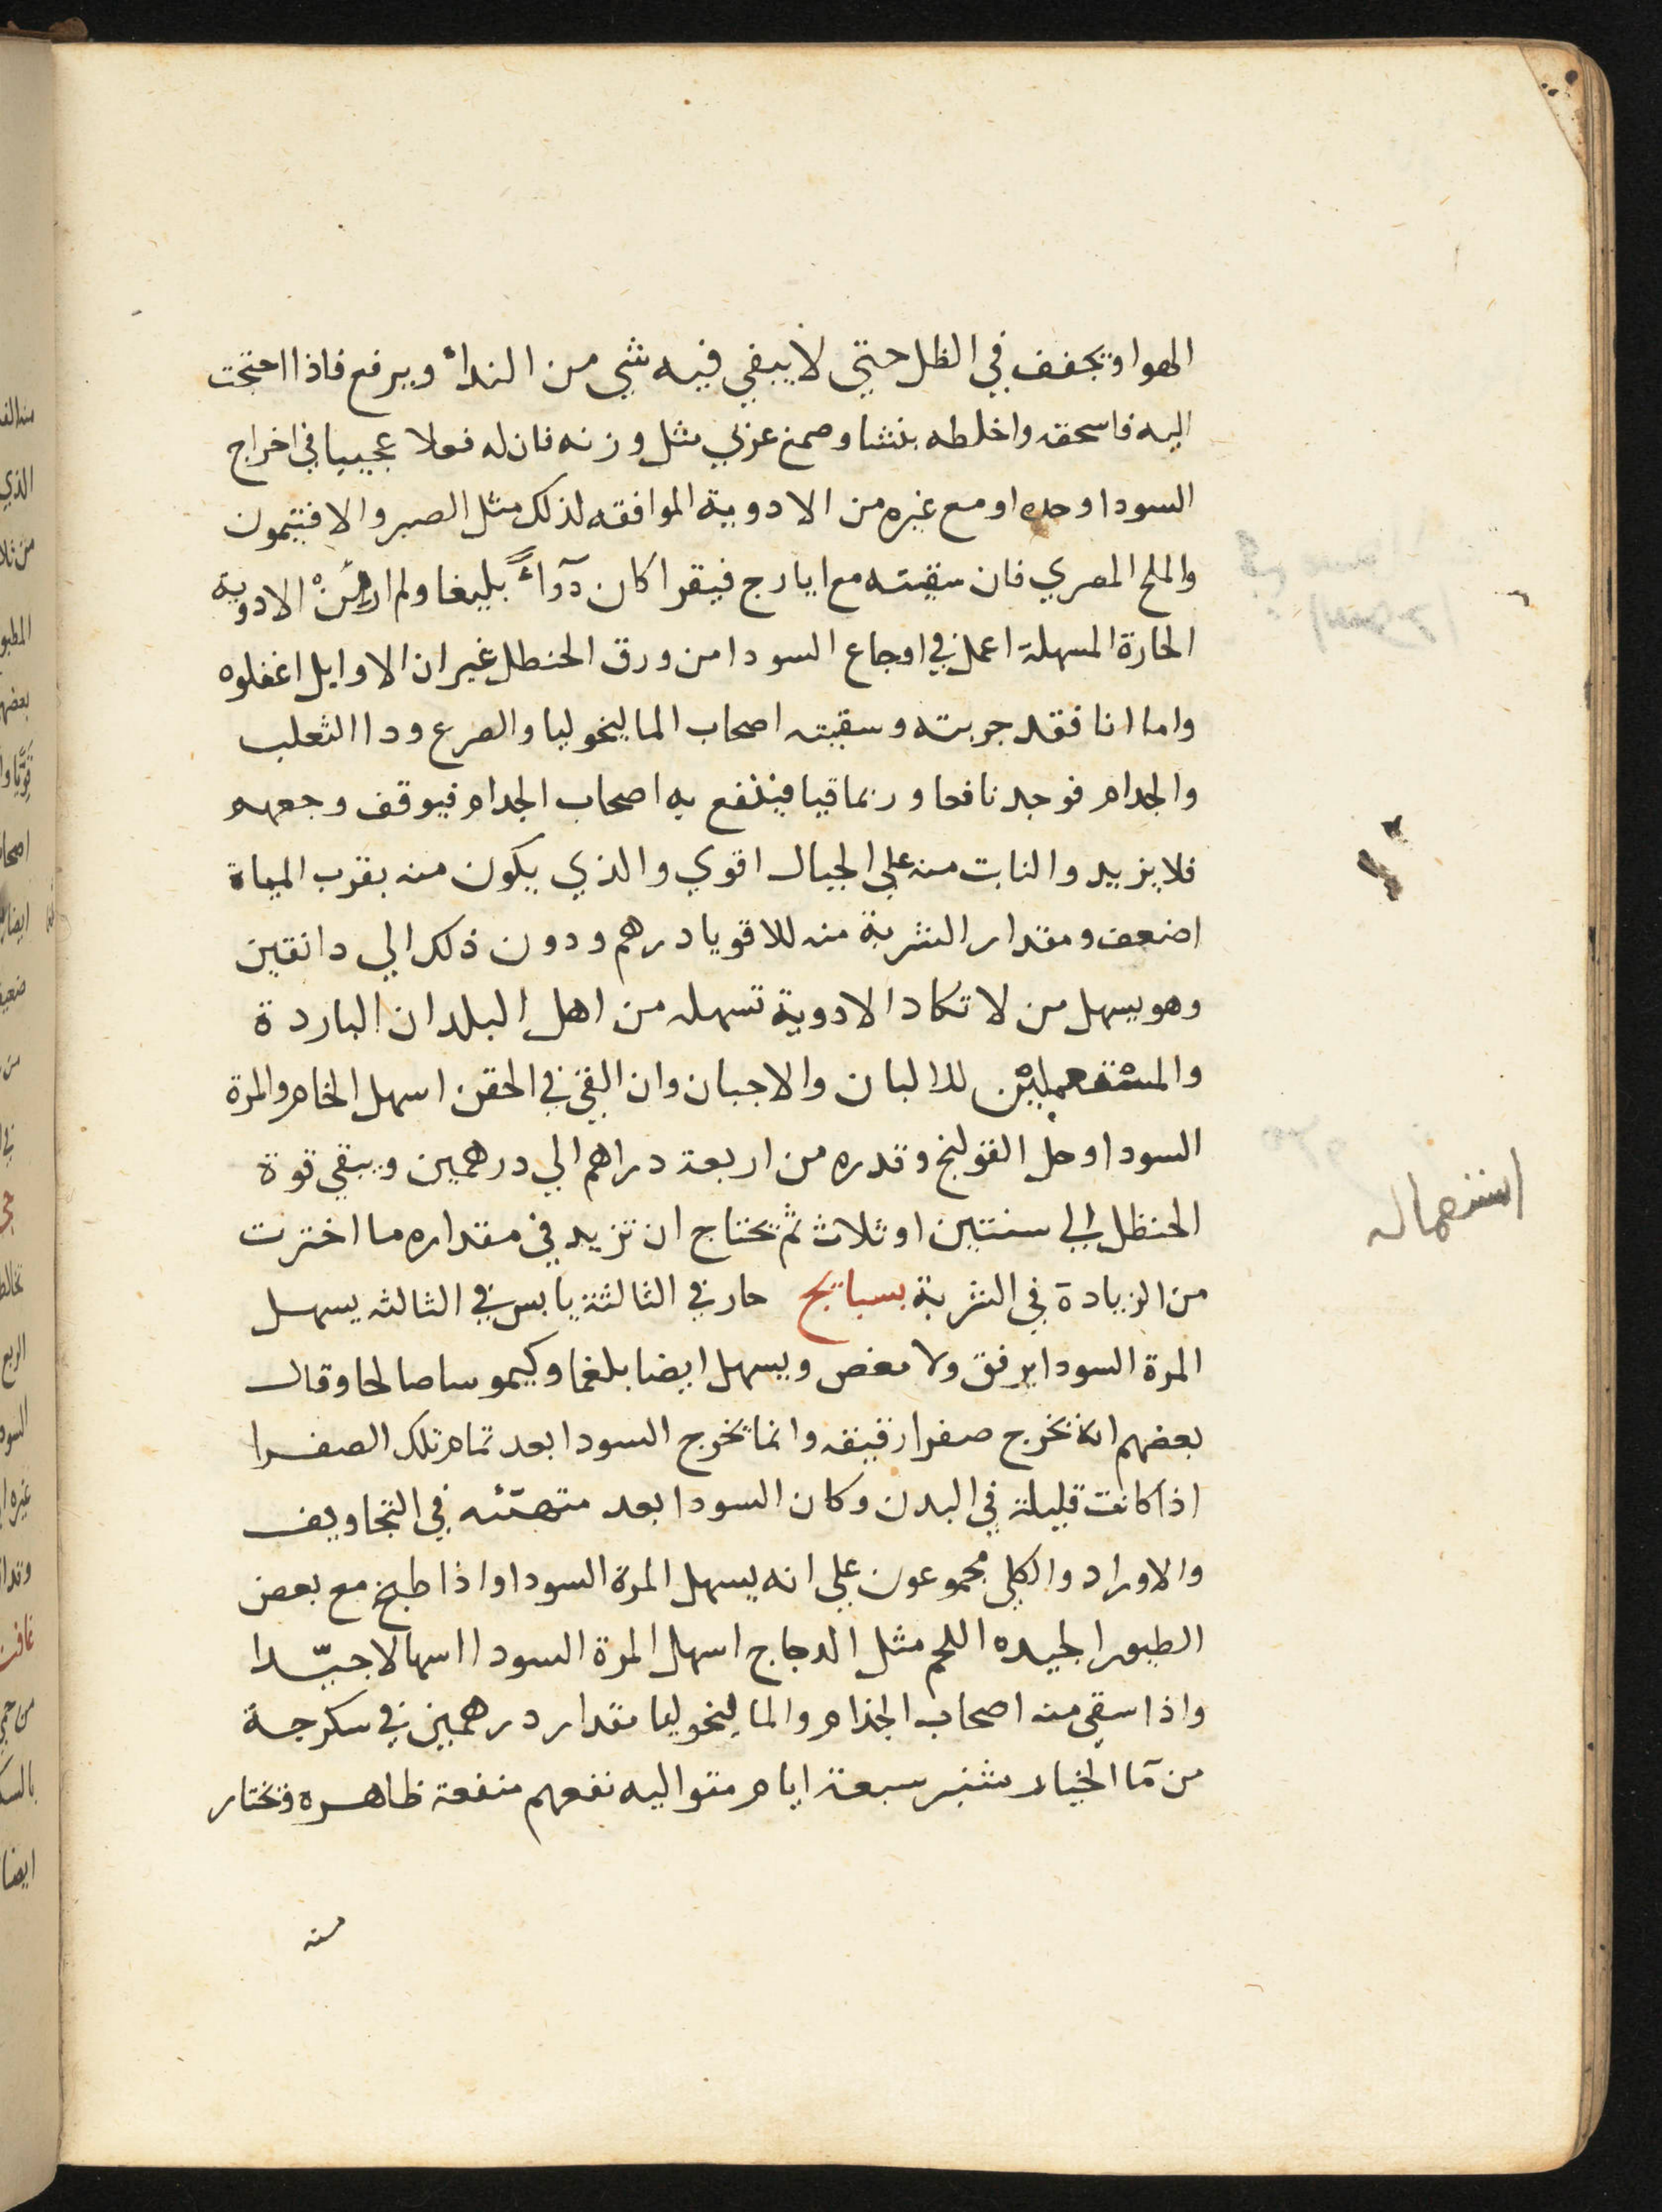 الهوا وتجفف في الظل حتي لا يبقي فيه شي من النداء ويرفع فاذا احتجت
اليه فاسحقه واخلطه بنشا وصمغ عربي مثل وزنه فان له فعلا عجيبيا في اخراج
السودا وحده او مع غيره من الادوية الموافقه لذلك مثل الصبر والافتيمون
والملح المصري فان سقيته مع ايارج فيقرا كان دآواءً بليغا ولم ار من الادوية
الحارة المسهلة اعمل في اوجاع السودا من ورق الحنطل غير ان الاوايل اغفلوه
واما انا فقد جربته وسقيته اصحاب الماليخوليا والصرع ودا الثعلب
والجدام فوجد نافعا وربما قيا فينفع به اصحاب الجدام فيوقف وجعهم
فلا يزيد والنابت منه علي الجبال اقوي والذي يكون منه بقرب المياة
اضعف ومقدار الشربة منه للاقويا درهم ودون ذلك الي دانقين
وهو يسهل من لا تكاد الادوية تسهله من اهل البلدان الباردة
والمستعملين للالبان والاجبان وان القي في الحقن اسهل الخام والمرة
السودا وحل القولنج وقدره من اربعة دراهم الي درهمين ويبقي قوة
الحنظل الي سنتين او ثلاث ثم تحتاج ان تزيد في مقداره ما اخترت
من الزيادة في الشربة بسبايج حار في الثالثة يابس في الثالثه يسهل
المرة السودا برفق ولا مغص ويسهل ايضا بلغما وكيموسا صالحا وقال
بعضهم انه يخرج صفرا رقيقه وانما يخرج السودا بعد تمام تلك الصفرا
اذا كانت قليلة في البدن وكان السودا بعد متهيئه في التجاويف
والاوراد والكلي مجموعون علي انه يسهل المرة السودا واذا طبخ مع بعض
الطيور الجيده اللحم مثل الدجاج اسهل المرة السودا اسهالا جيّدا
واذا سقي منه اصحاب الجذام والماليخوليا مقدار درهمين في سكرجة
من مآ الخيار شنبر سبعة ايام متواليه نفعهم منفعة ظاهرة وتختار
منه
استعماله